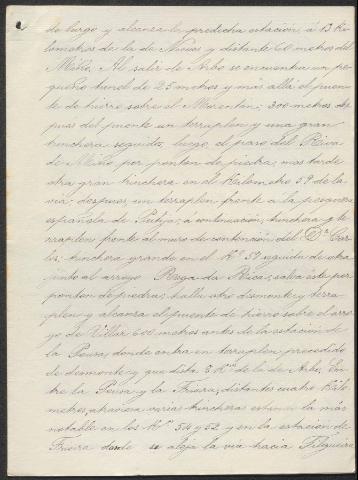 de largo y alcanza la predicha estación, á 13 Ki-
lometros de la de Nieves y distante 60 metros del
Miño. Al salir de Arbo se encuentra un pe-
queño tunel de 25 metros y más allá el puen-
te de hierro sobre el ; 300 metros des-
pues del puente un terraplen y una gran
trinchera seguida, luego, el paso del
de Miño por ponton de piedra; mas tarde
otra gran trinchera en el Kilometro 59 de la
via; despues un terraplen frente á la pesquera
española de ; a continuación, trinchera y te-
rraplen frente al muro de contención del Dn. Car-
los; trinchera grande en el Ko. 58 seguida de otra
junto al arroyo ; salva este por
ponton de piedra; halla otro desmonte y terra-
plen y alcanza el puente de hierro sobre el arro-
yo de Villar 600 metros antes de la estación de
la , donde entra en terraplen precedido
de desmonte y que dista 8 Km. de la de Arbo. En-
tre la y la Friera, distantes cuatro Kiló-
metros, atraviesa varias trincheras estando la más
notable en los Ko. 54 y 52 y en la estacion de
Friera donde se aleja la via hacia Filgueira